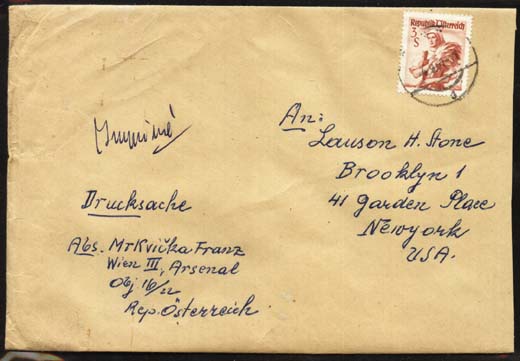 Republik Österreich
3
S
Imprimé
An:
Lawson H. Stone
Brooklyn 1
41 Garden Place
Newyork
USA.
Drucksache
Abs. MrKvička Franz
Wien III, Arsenal
Obj 16/22
Rep. Österreich